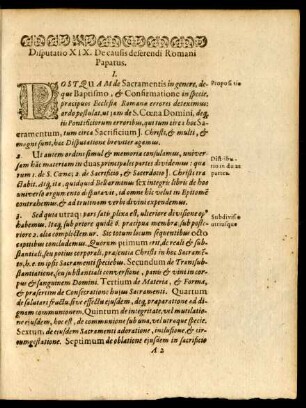 Disputatio XIX. De causis deserendi Romani
Papatus.
I.
POSTQUAM de Sacramentis in genere, de-
que Baptismo, & Confirmatione in specie,
præcipuos Ecclesiæ Romanæ errores deteximus:
ordo postulat, ut jam de S. Cœna Domini, deq́;
iis Pontificiorum erroribus, qui tum circa hoc Sa-
cramentum, tum circa Sacrificium J. Christi, & multi, &
magni sunt, hac Disputatione breviter agamus.
Propositio
2. Ut autem ordini simul & memoriæ consulamus, univer-
sam hāc materiam in duas principales partes dividemus: qua-
rum 1: de S. Cœna; 2. de Sacrificio, & Sacerdotio J. Christi tra-
ctabit. deq́; iis, quidquid Bellarminus sex integris libris de hoc
universo argumento disputavit, id omne hic velut in Epitome
contrahemus, & ad trutinam verbi divini expendemus.
Distribu-
tio in duas
partes.
3. Sed quia utraq; pars satis plexa est, ulteriore divisione opus
habemus. Itaq; sub priore quidē 6. præcipua membra, sub poste-
riore 2. alia complectemur. Sic totum litem segmentibus octo
capitibus concludemus. Quorum primum erit, de reali & sub-
stantiali, seu potius corporali, præsentia Christi in hoc Sacramēto,
h. e. in ipsis Sacramenti speciebus. Secundum de Transub-
stantiatione, seu substantiali conversione, panis & vini, in corpus
& sanguinem Domini. Tertium de Materia, & Forma,
& præsertim de Consecratione hujus Sacramenti. Quartum
de salutari fructu, sive effectu ejusdem, deq́; præparatione ad di-
gnam communionem. Quintum de integritate, vel mutilatio-
ne ejusdem, hoc est, de communione sub una, vel utraque specie.
Sextum, de ejusdem Sacramenti adoratione, inclusione, & cir-
cumgestatione. Septimum de oblatione ejusdem in sacrificio
Subdivisio
utriusque
A 2